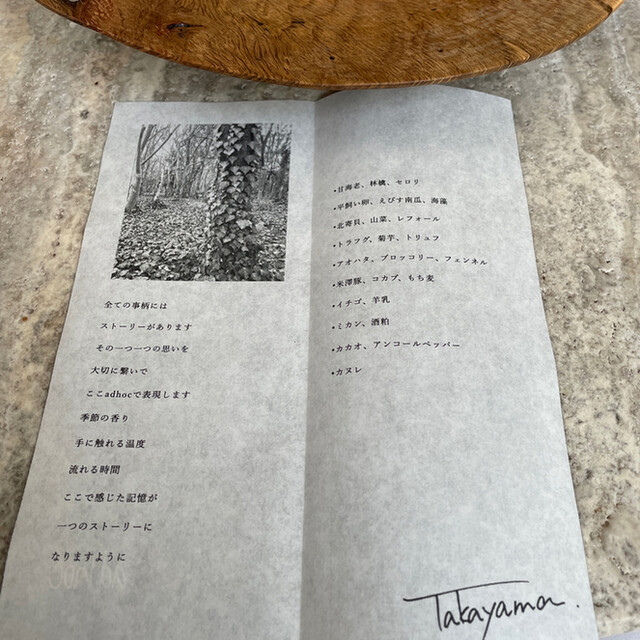 全ての事柄には
ストーリーがあります
その一つ一つの思いを
大切に繋いで
ここadhocで表現します
季節の香り
手に触れる温度
流れる時間
ここで感じた記憶が
一つのストーリーに
なりますように
•甘海老、林檎、セロリ
•平飼い卵、えびす南瓜、海藻
•北寄貝、山菜、レフォール
•トラフグ、菊芋、トリュフ
•アオハタ、ブロッコリー、フェンネル
•米澤豚、コカブ、もち麦
•イチゴ、羊乳
•ミカン、酒粕
•カカオ、アンコールペッパー
•カヌレ
Takayama.